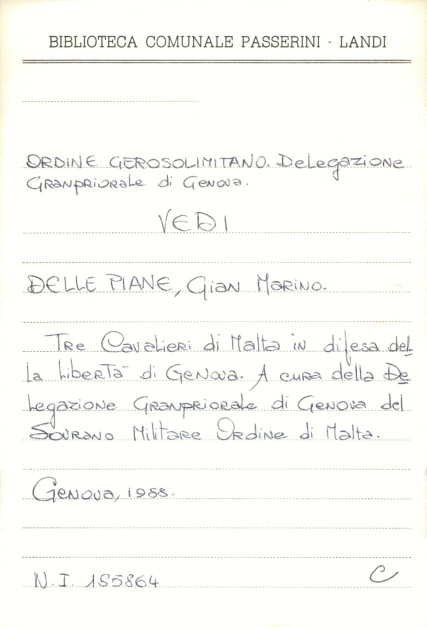 BIBLIOTECA COMUNALE PASSERINI - LANDI
ORDINE GEROSOLIMITANO. Delegazione
Granpriorale di Genova.
VEDI
DELLE PIANE, Gian Marino.
Tre Cavalieri di Malta in difesa del
la libertà di Genova. A cura della De
legazione Granpriorale di Genova del
Sovrano Militare Ordine di Malta.
Genova, 1988.
N.I. 185864 C